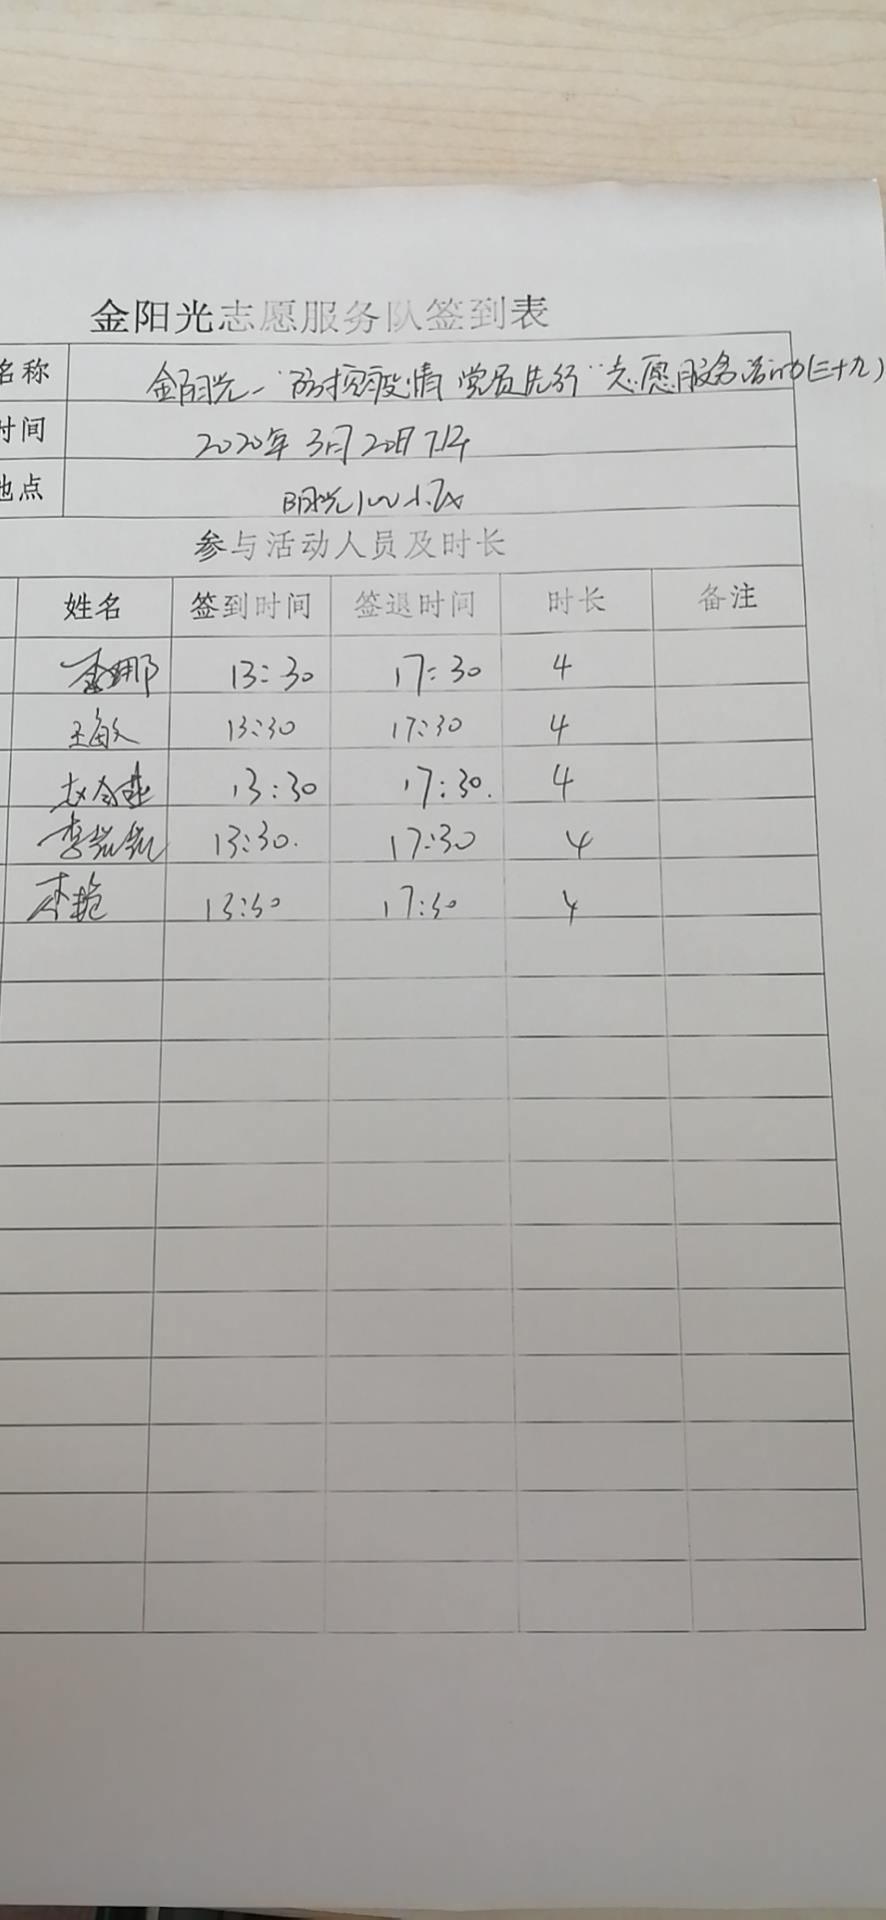 金阳光志愿服务队签到表
名称 金阳光—"防控疫情 党员先行"志愿服务活动(三十九)
时间 2020年3月20日下午
地点 阳光100小区
参与活动人员及时长
姓名 签到时间 签退时间 时长 备注
李娜 13:30 17:30 4
王敏 13:30 17:30 4
赵 13:30 17:30. 4
李 13:30. 17:30 4
李艳 13:30 17:30 4